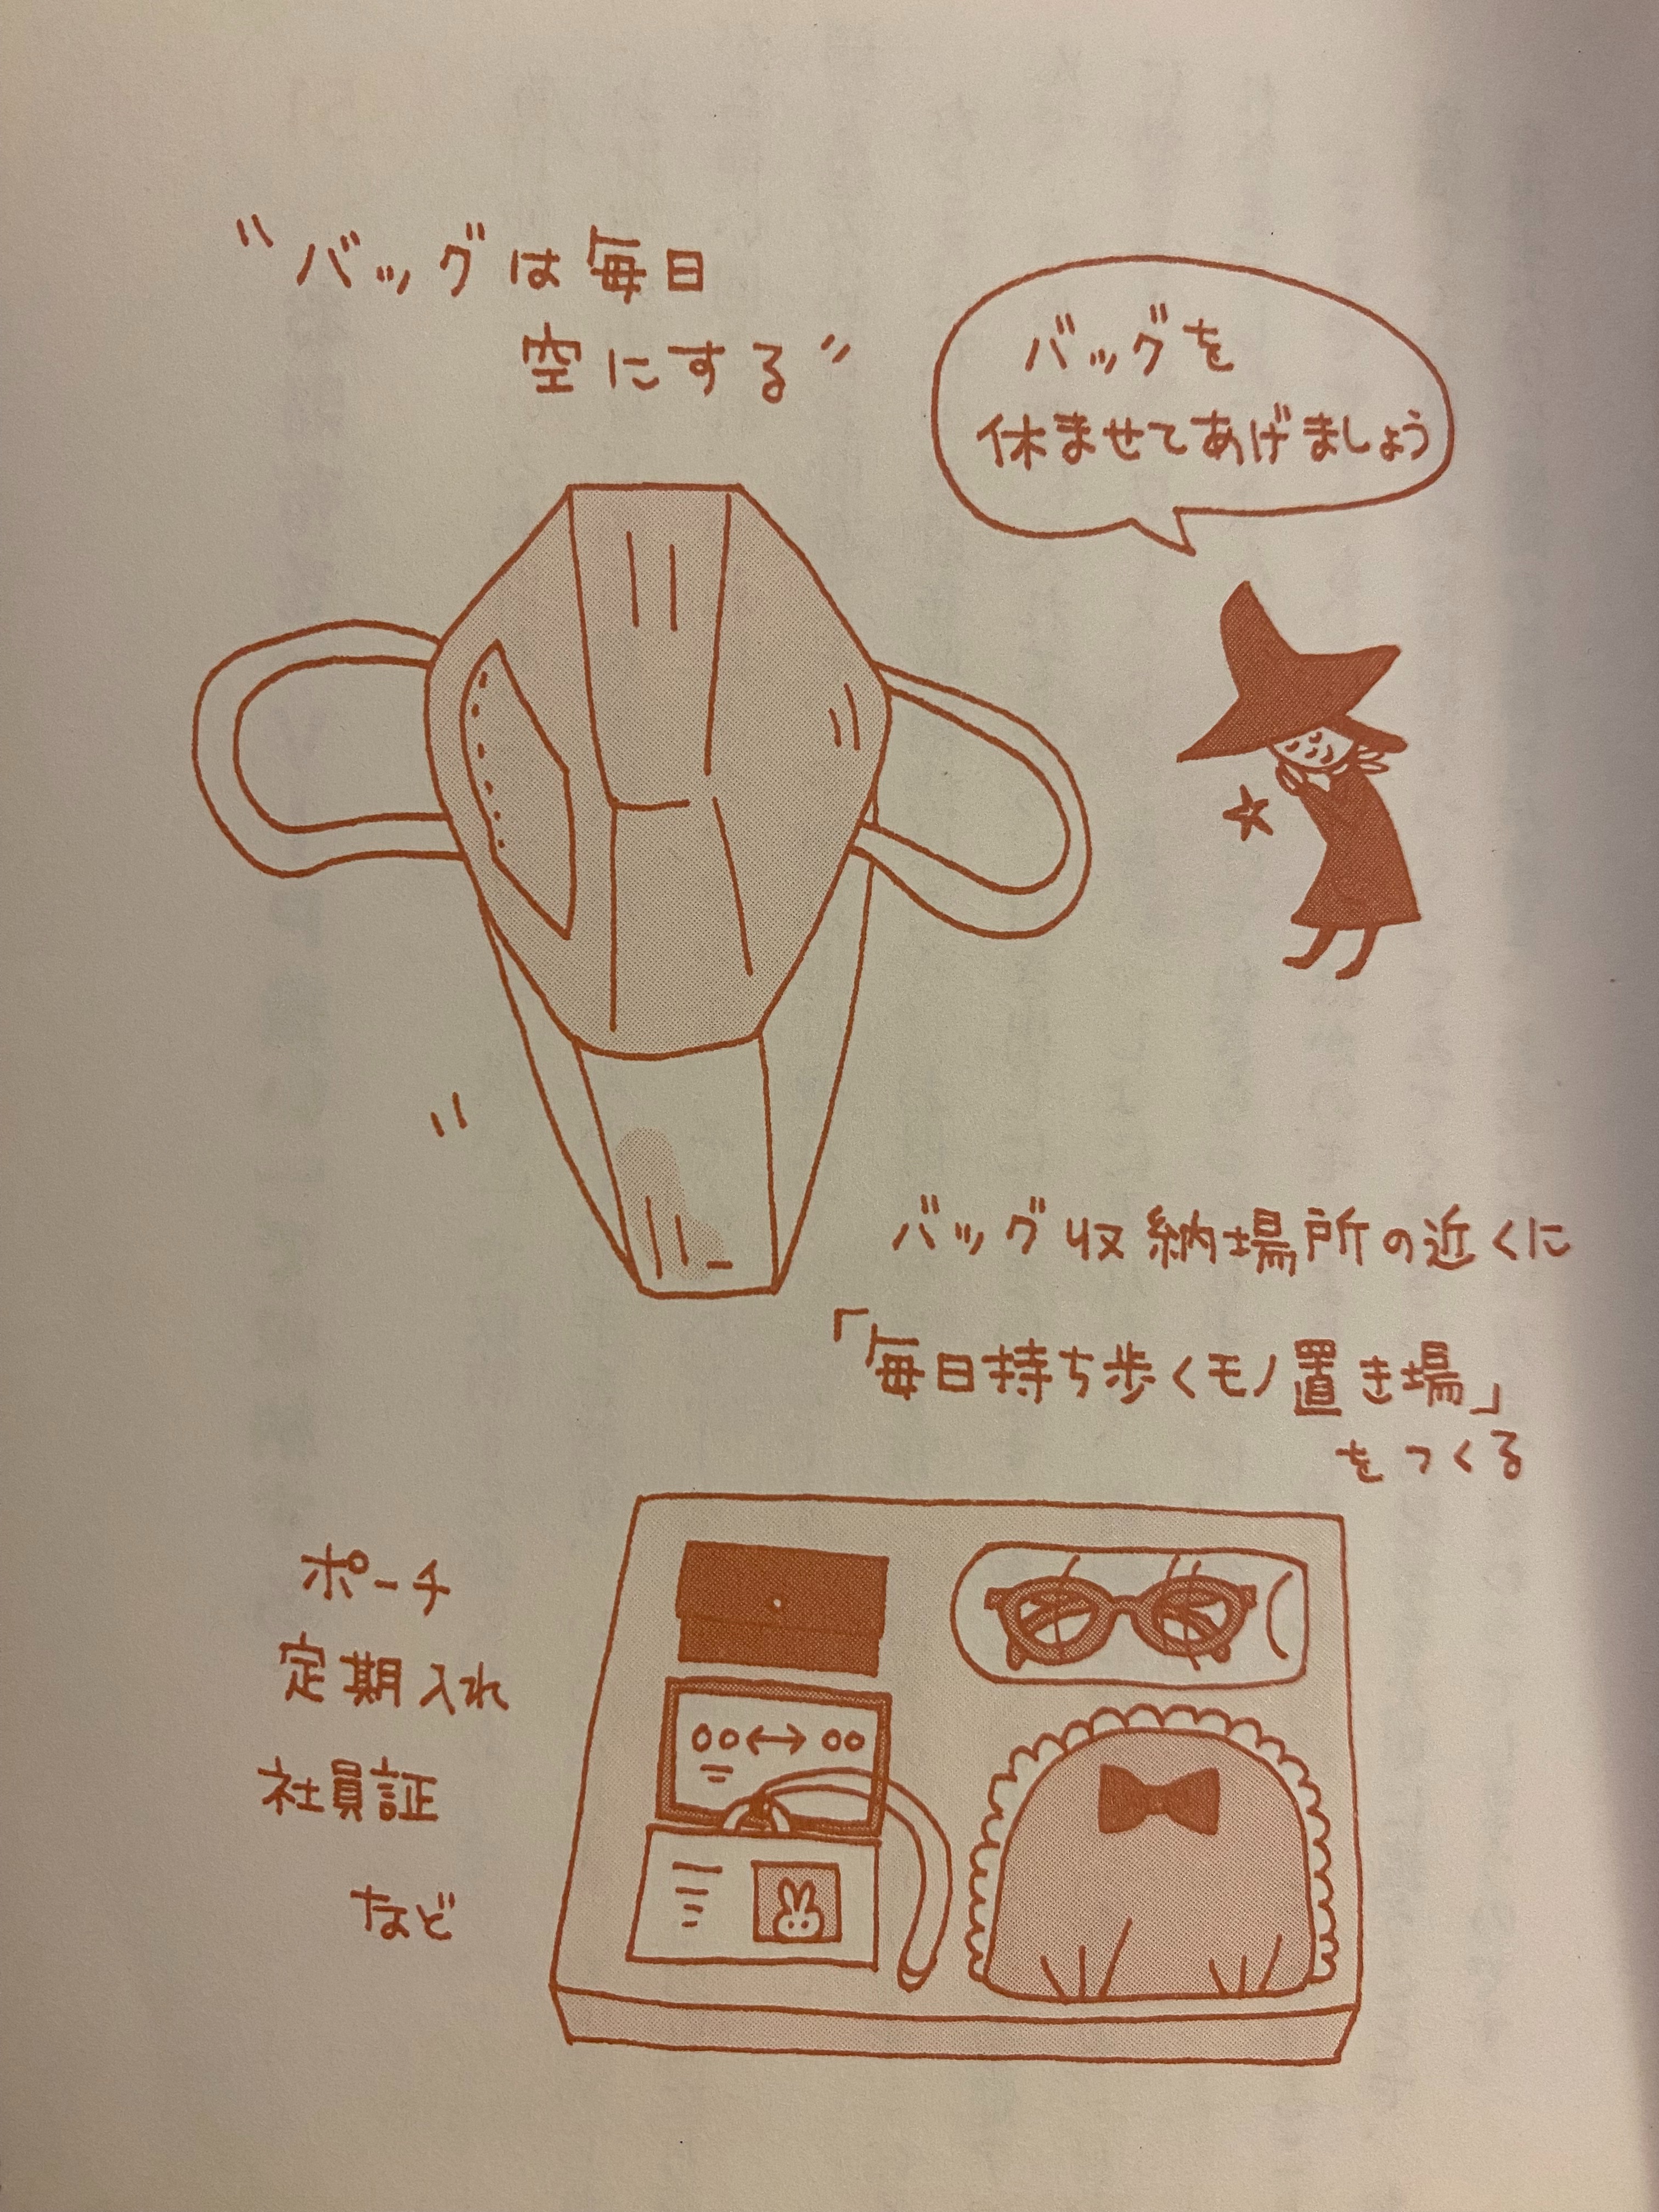 "バッグは毎日
空にする"
バッグを
休ませてあげましょう
バッグ収納場所の近くに
「毎日持ち歩くモノ置き場」
をつくる
ポーチ
定期入れ
社員証
など
○○↔○○